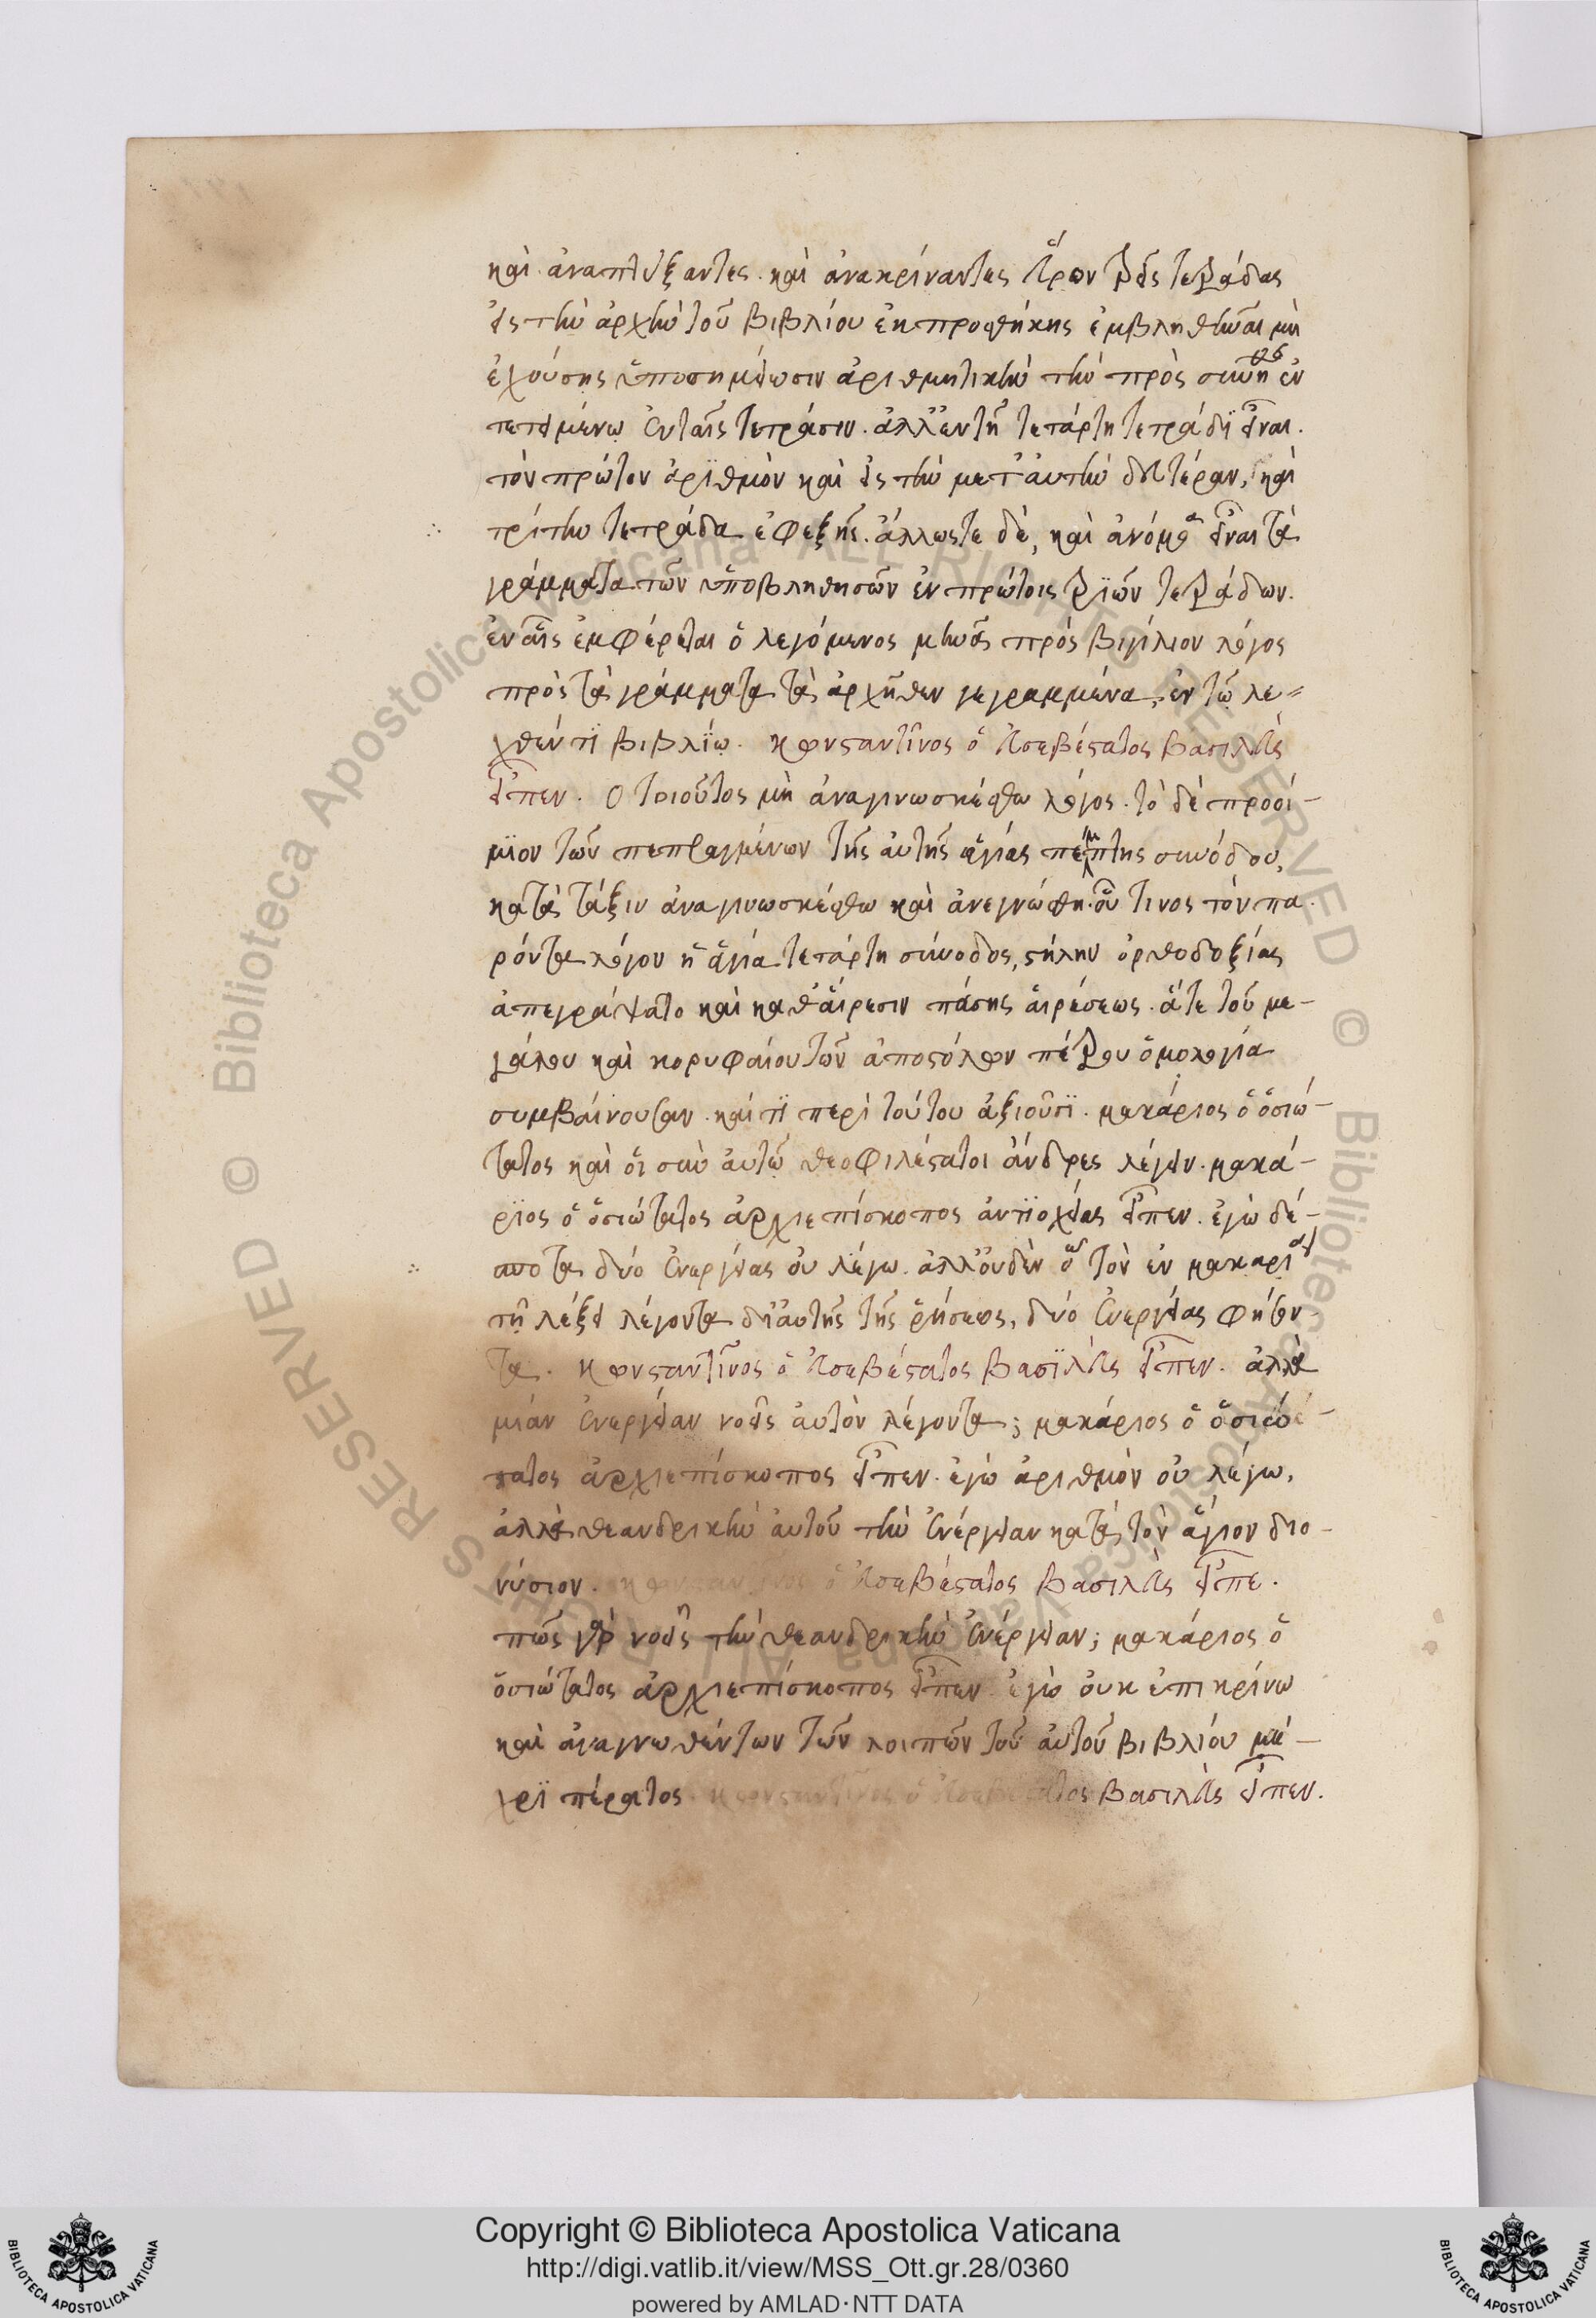 καὶ ἀναπτύξαντες. καὶ ἀνακρίναντες εὗρον τρεῖς τετράδας
εἰς τὴν ἀρχὴν τοῦ βιβλίου ἐκ προσθήκης ἐμβληθῆναι μὴ
ἐχούσης ὑποσημείωσιν ἀριθμητικὴν τὴν πρὸς συνήθως ἐν
τεταμένω ἐν ταῖς τετράσιν. ἀλλ' ἐν τῆ τετάρτη τετράδϊ εἶναι.
τὸν πρῶτον ἀρϊθμὸν καὶ εἰς τὴν μετ' αὐτὴν δευτέραν, καὶ
τρίτην τετράδα ἐφεξῆς. ἄλλωστε δὲ, καὶ ἀνόμοια εἶναι τὰ
γράμματα τῶν ὑποβληθησῶν ἐν πρώτοις τρϊῶν τετράδων.
ἐν αἷς ἐμφέρεται ὁ λεγόμενος μηνᾶς πρὸς βιγίλιον λόγος
πρὸς τὰ γράμματα τὰ ἀρχῆθεν γεγραμμένα, ἐν τῶ λε=
χθέντϊ βιβλίω. κωνσταντῖνος ὁ εὐσεβέστατος βασιλεὺς
εἶπεν. Ο τοιοῦτος μὴ ἀναγινωσκέσθω λόγος. τὸ δὲ προοί-
μϊον τῶν πεπραγμένων τῆς αὐτῆς ἁγίας πέμπτης συνόδου,
κατὰ τάξιν ἀναγινωσκέσθω καὶ ἀνεγνώσθη. οὗ τινος τὸν πα
ρόντα λόγον ἡ ἁγία τετάρτη σύνοδος, στήλην ὀρθοδοξίας
ἀπεγράψατο καὶ καθ' αἵρεσιν πάσης αἱρέσεως. ἅτε τοῦ με-
γάλου καὶ κορυφαίου τῶν ἀποστόλων πέτρου ὁμολογία
συμβαίνουσαν. καί τϊ περὶ τούτου ἀξιοῦσϊ. μακάριος ὁ ὁσιώ-
τατος καὶ οἱ σὺν αὐτῶ θεοφιλέστατοι ἄνδρες λέγειν. μακά-
ρϊος ὁ ὁσιώτατος ἀρχιεπίσκοπος ἀντϊοχείας εἶπεν. ἐγὼ δέ-
σποτα δύο ἐνεργείας οὐ λέγω. ἀλλ' οὐδὲν τὸν ἐν μακαρί
τῆ λέξει λέγοντα δϊ' αὐτῆς τῆς ῥήσεως, δύο ἐνεργείας φήσαν
τα. κωνσταντῖνος ὁ εὐσεβέστατος βασϊλεὺς εἶπεν. ἀλλὰ
μιὰν ἐνεργείαν νοεῖς αὐτὸν λέγοντα; μακάριος ὁ ὁσιώ-
τατος ἀρχιεπίσκοπος εἶπεν. ἐγὼ ἀριθμὸν οὐ λέγω.
ἀλλὰ θεανδρικὴν αὐτοῦ τὴν ἐνέργειαν κατὰ τὸν ἅγιον διο-
νύσιον. κωνσταντῖνος ὁ εὐσεβέστατος βασιλεὺς εἶπε.
πῶς γὰρ νοεῖς τὴν θεανδρικὴν ἐνέργειαν; μακάριος ὁ
ὁσιώτατος ἀρχιεπίσκοπος εἶπεν. ἐγὼ οὐκ ἐπικρίνω
καὶ ἀναγνωθέντων τῶν λοιπῶν τοῦ αὐτοῦ βιβλίου μέ-
χρϊ πέρατος. κωνσταντῖνος ὁ εὐσεβέστατος βασιλεὺς εἶπεν.
© Biblioteca Apostolica Vaticana ALL RIGHTS RESERVED
© Biblioteca Apostolica Vaticana ALL RIGHTS RESERVED
BIBLIOTECA APOSTOLICA VATICANA
Copyright © Biblioteca Apostolica Vaticana
http://digi.vatlib.it/view/MSS_Ott.gr.28/0360
powered by AMLAD·NTT DATA
BIBLIOTECA APOSTOLICA VATICANA